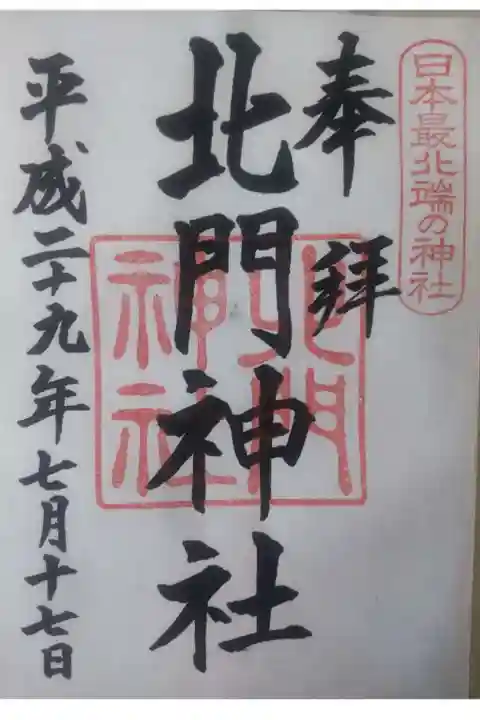 日本最北端の神社
奉拝
北門神社
北門
神社
平成二十九年七月十七日